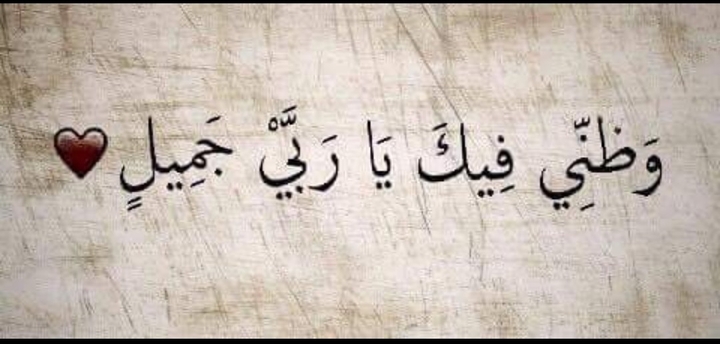 وَظَنِّي فِيكَ يَا رَبَّيْ جَمِيلٍ ❤